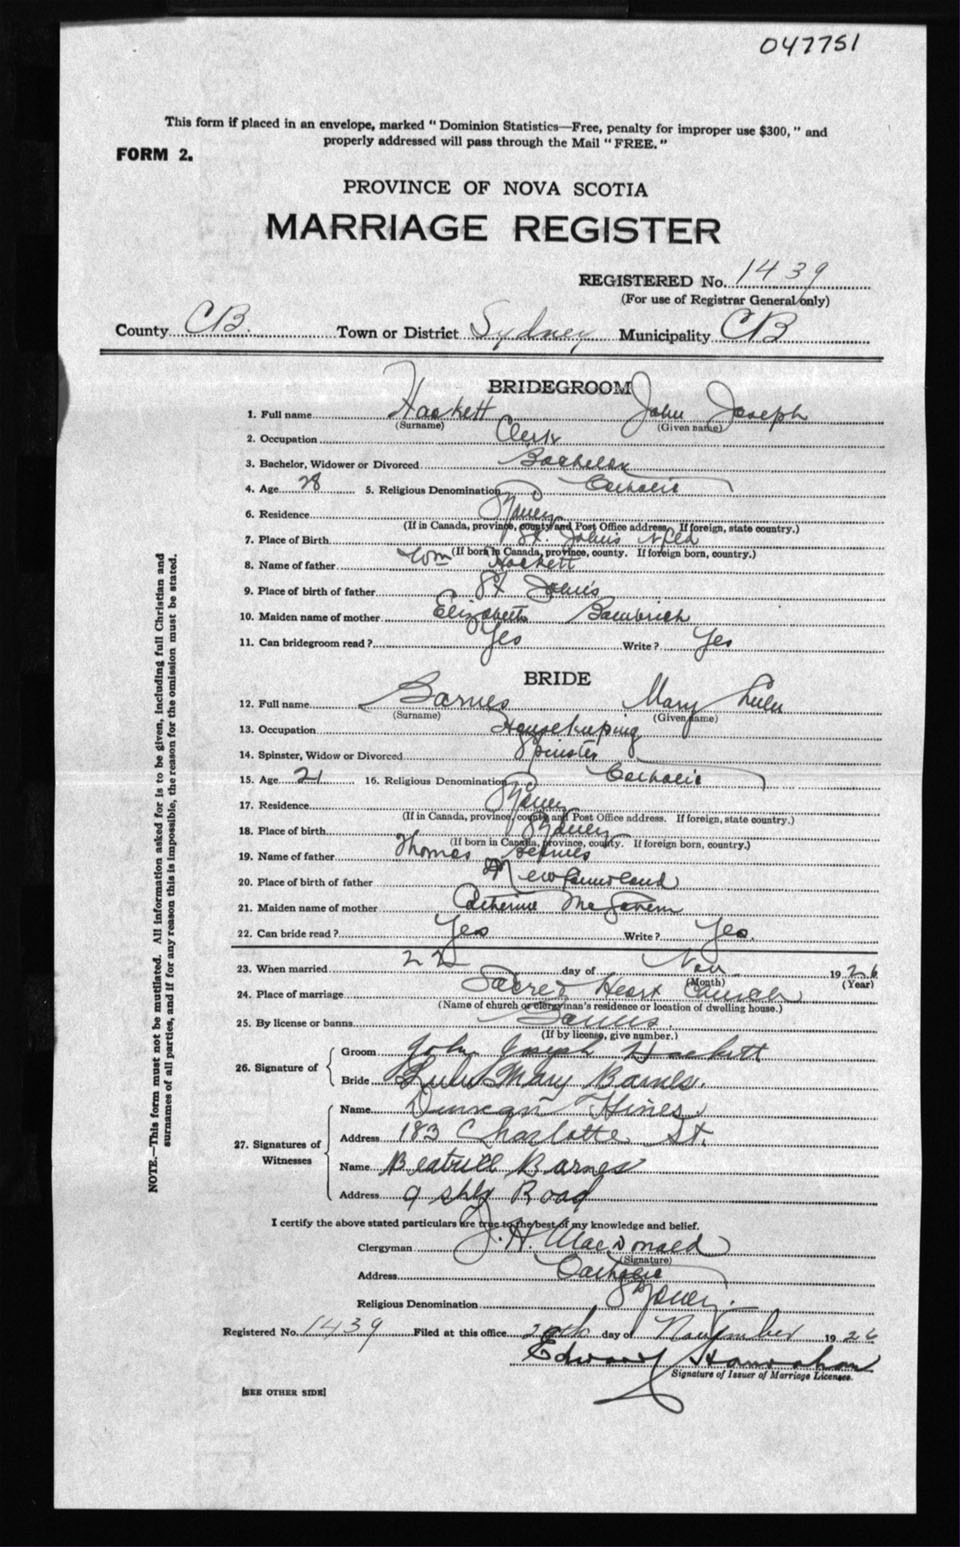 047751
This form if placed in an envelope, marked " Dominion Statistics—Free, penalty for improper use $300, " and
properly addressed will pass through the Mail " FREE. "
FORM 2.
PROVINCE OF NOVA SCOTIA
MARRIAGE REGISTER
REGISTERED No. 1439
(For use of Registrar General only)
County CB. Town or District Sydney Municipality CB
BRIDEGROOM
1. Full name Hackett John Joseph
(Surname) (Given name)
2. Occupation Clerk
3. Bachelor, Widower or Divorced Bachelor
4. Age 28 5. Religious Denomination Catholic
6. Residence Sydney
(If in Canada, province, county and Post Office address. If foreign, state country.)
7. Place of Birth St. John's Nfld
(If born in Canada, province, county. If foreign born, country.)
8. Name of father Wm Hackett
9. Place of birth of father St John's
10. Maiden name of mother Elizabeth
11. Can bridegroom read ? Yes Write ? Yes
BRIDE
12. Full name Barnes Mary Lulu
(Surname) (Given name)
13. Occupation Housekeeping
14. Spinster, Widow or Divorced Spinster
15. Age 21 16. Religious Denomination Catholic
17. Residence Sydney
(If in Canada, province, county and Post Office address. If foreign, state country.)
18. Place of birth Sydney
(If born in Canada, province, county. If foreign born, country.)
19. Name of father Thomas Barnes
20. Place of birth of father Newfoundland
21. Maiden name of mother Catherine
22. Can bride read ? Yes Write ? Yes.
23. When married 22 day of Nov 1926
(Month) (Year)
24. Place of marriage Sacred Heart Church
(Name of church or clergyman's residence or location of dwelling house.)
25. By license or banns Banns.
(If by license, give number.)
26. Signature of
Groom John Joseph Hackett
Bride Lulu Mary Barnes.
27. Signatures of Witnesses
Name Duncan Hines
Address 183 Charlotte St.
Name Beatrice Barnes
Address Road
I certify the above stated particulars are true to the best of my knowledge and belief.
Clergyman J. H. MacDonald
(Signature)
Address Catholic
Religious Denomination Sydney.
Registered No. 1439 Filed at this office day of November 1926
Edward Hanrahan
Signature of Issuer of Marriage Licenses.
[SEE OTHER SIDE]
NOTE.—This form must not be mutilated. All information asked for is to be given, including full Christian and
surnames of all parties, and if for any reason this is impossible, the reason for the omission must be stated.